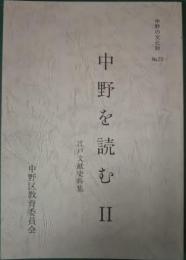 中野の文化財 No.20
中野を読むⅡ
江戸文献史料集
中野区教育委員会